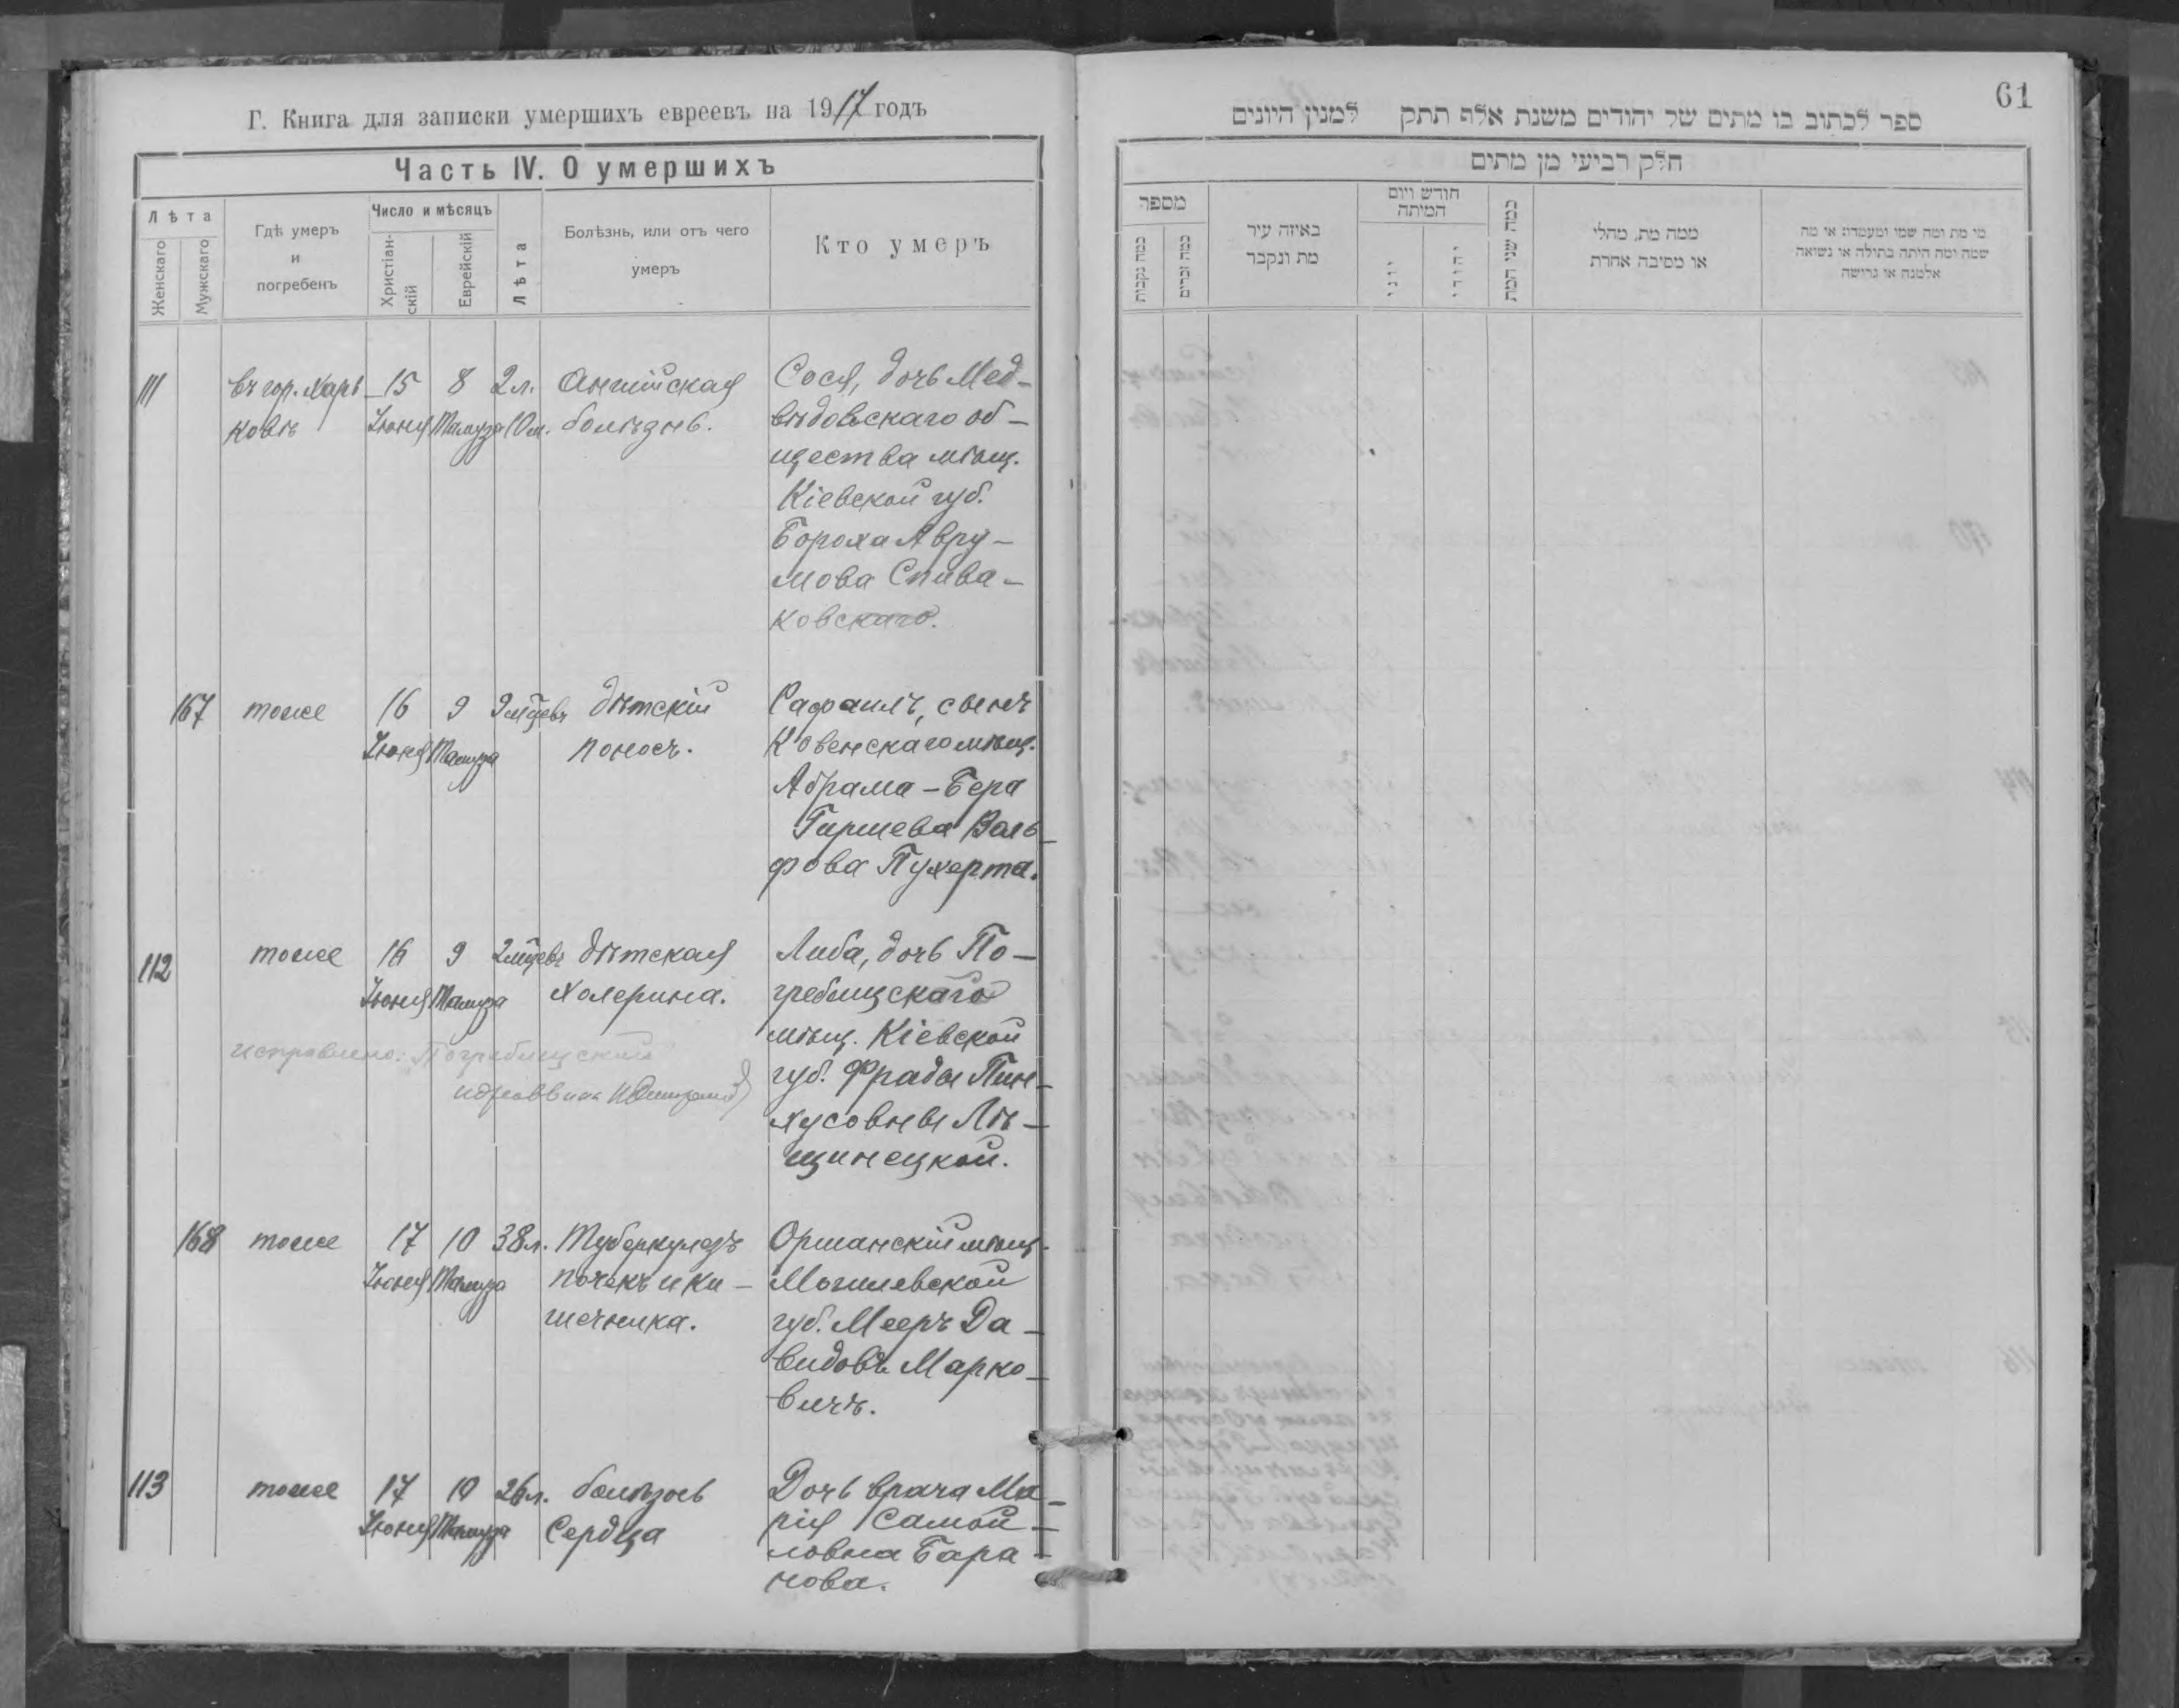 Г. Книга для записки умершихъ евреевъ на 1917 годъ
Часть IV. О умершихъ
Лѣта
Женскаго
Мужскаго
Гдѣ умеръ
и
погребенъ
Число и мѣсяцъ
Христіан-
скій
Еврейскій
Лѣта
Болѣзнь, или отъ чего
умеръ
Кто умеръ
111
въ гор. Харь-
ковѣ
15
Іюня
8
Тамуза
2 л.
10 м.
Англійская
болѣзнь.
Сося, дочь Мед-
вѣдовскаго об-
щества мѣщ.
Кіевской губ.
Бороха Авру-
мова Спива-
ковскаго.
167
тоже
16
Іюня
9
Тамуза
9 мѣцевъ
дѣтскій
поносъ.
Рафаилъ, сынъ
Ковенскаго мѣщ.
Абрама-Бера
Гиршева Воль-
фова Пухерта.
112
тоже
16
Іюня
9
Тамуза
2 мѣцевъ
дѣтская
холерина.
Либа, дочь По-
гребищскаго
мѣщ. Кіевской
губ. Фрады Пин-
хусовны Лѣ-
щинецкой.
исправлено: Погребищскаго
168
тоже
17
Іюня
10
Тамуза
38 л.
Туберкулезъ
почекъ и ки-
шечника.
Оршанскій мѣщ.
Могилевской
губ. Мееръ Да-
видовъ Марко-
вичъ.
113
тоже
17
Іюня
10
Тамуза
26 л.
болѣзнь
Сердца
Дочь врача Ма-
рія Самой-
ловна Бара-
нова.
61
ספר לכתוב בו מתים של יהודים משנת אלף תתק למנין היונים
חלק רביעי מן מתים
מספר
כמה נקבות
כמה זכרים
באיזה עיר
מת ונקבר
חודש ויום
המיתה
יוני
יהודי
כמה שני המת
ממה מת, מחלי
או מסיבה אחרת
מי מת ומה שמו ומעמדו או מה
שמה ומה היתה בתולה או נשואה
אלמנה או גרושה